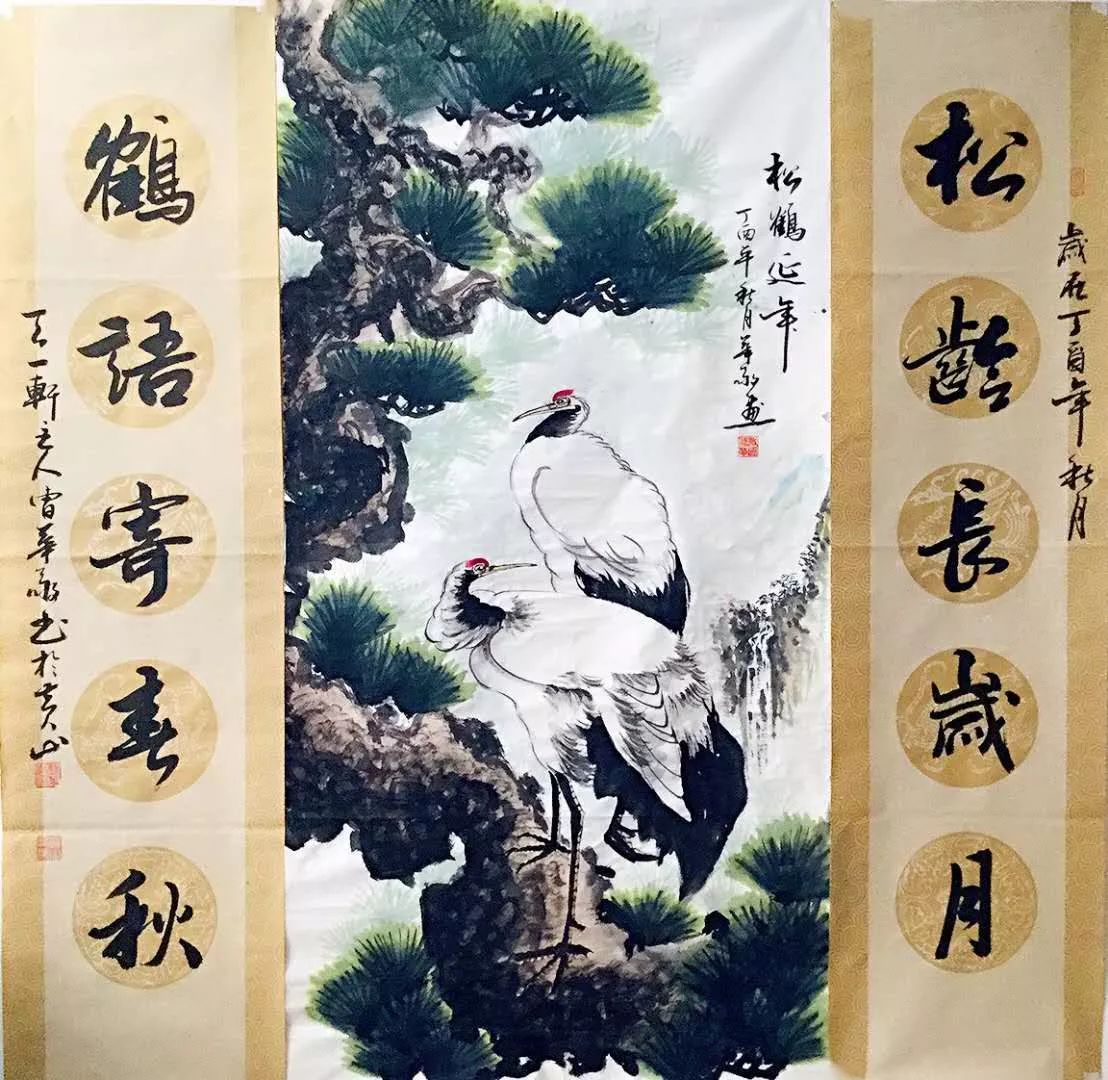 歲在丁酉年秋月
松齡長歲月
松鶴延年
丁酉年秋月華敬畫
鶴語寄春秋
天一軒主人曾華敬書於黃山